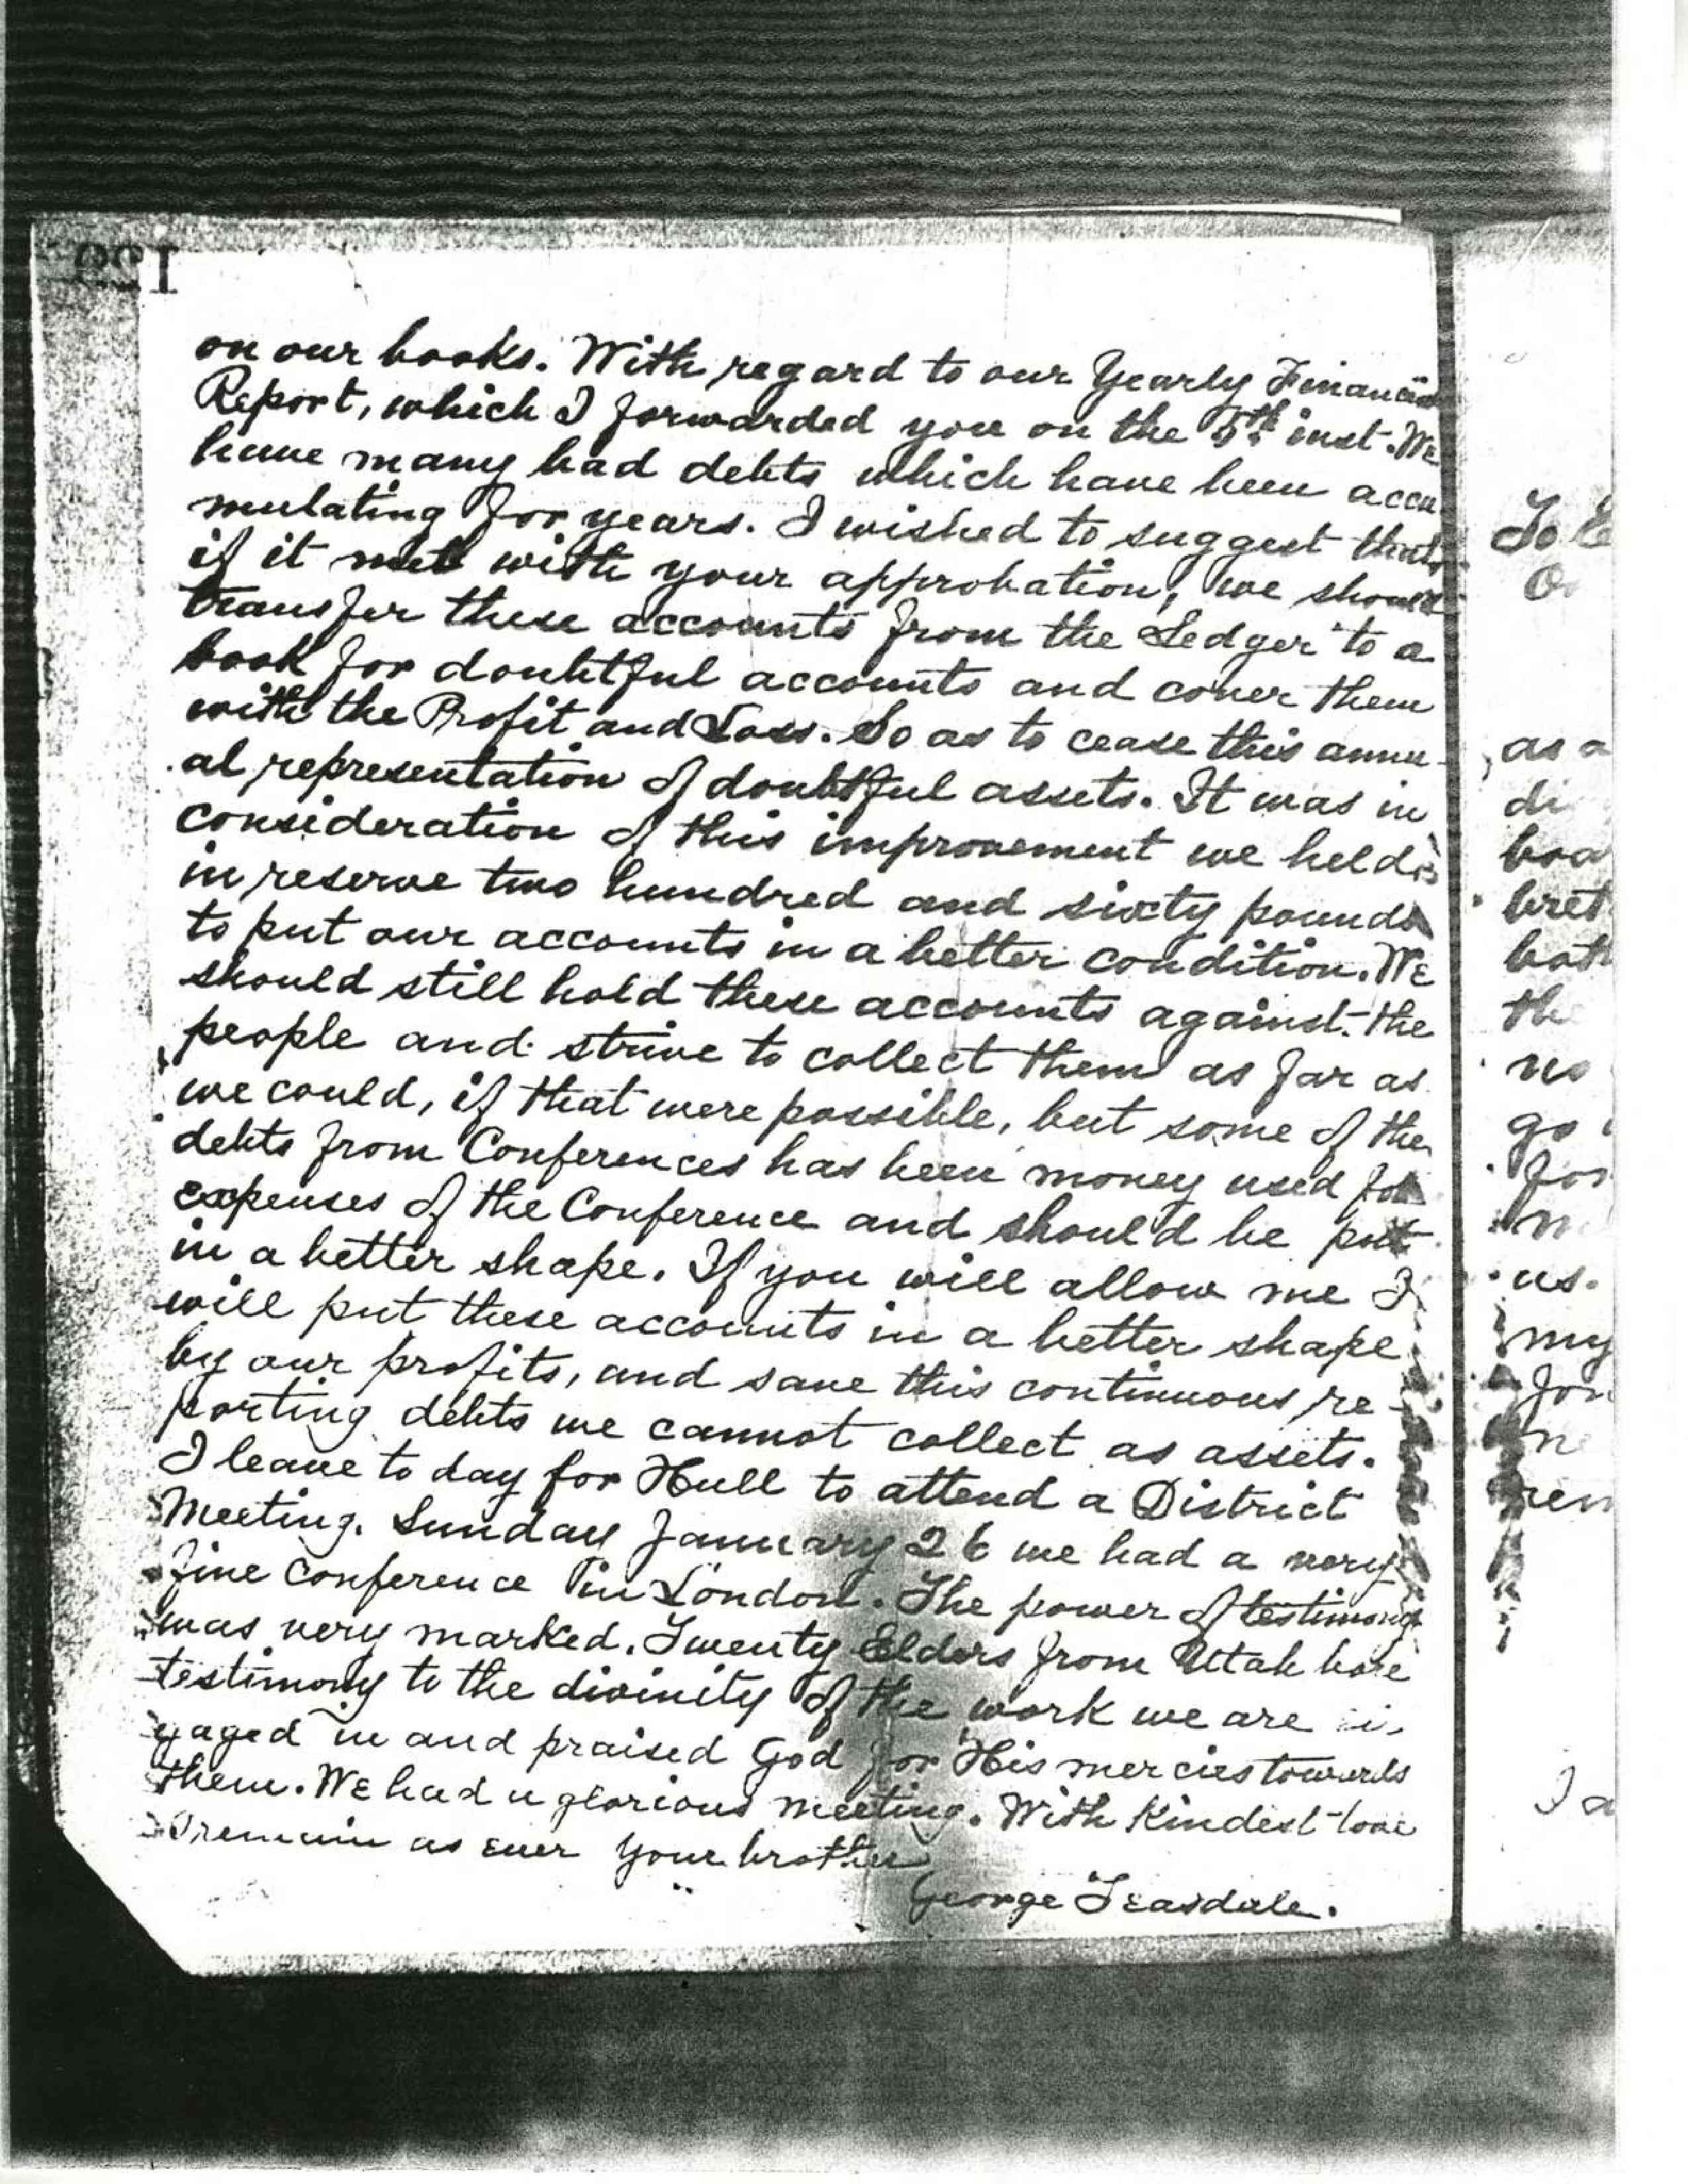 on our books. With regard to our Yearly Financial
Report, which I forwarded you on the 5th inst. We
have many bad debts which have been accu
mulating for years. I wished to suggest that,
if it met with your approbation, we should
transfer these accounts from the Ledger to a
book for doubtful accounts and cover them
with the Profit and Loss. So as to cease this annu-
al representation of doubtful assets. It was in
consideration of this improvement we held
in reserve two hundred and sixty pounds
to put our accounts in a better condition. We
should still hold these accounts against the
people and strive to collect them as far as
we could, if that were possible, but some of the
debts from Conferences has been money used for
expenses of the Conference and should be put
in a better shape. If you will allow me I
will put these accounts in a better shape
by our profits, and save this continuous re-
porting debts we cannot collect as assets.
I leave to day for Hull to attend a District
Meeting. Sunday January 26 we had a very
fine conference in London. The power of testimony
was very marked. Twenty Elders from Utah bore
testimony to the divinity of the work we are
gaged in and praised God for His mercies towards
them. We had a glorious meeting. With Kindest love
I remain as ever your brother
George Teasdale.
To E
as a
di
boa
bret
both
the
no
go
for
m
us.
my
for
ne
ren
I a